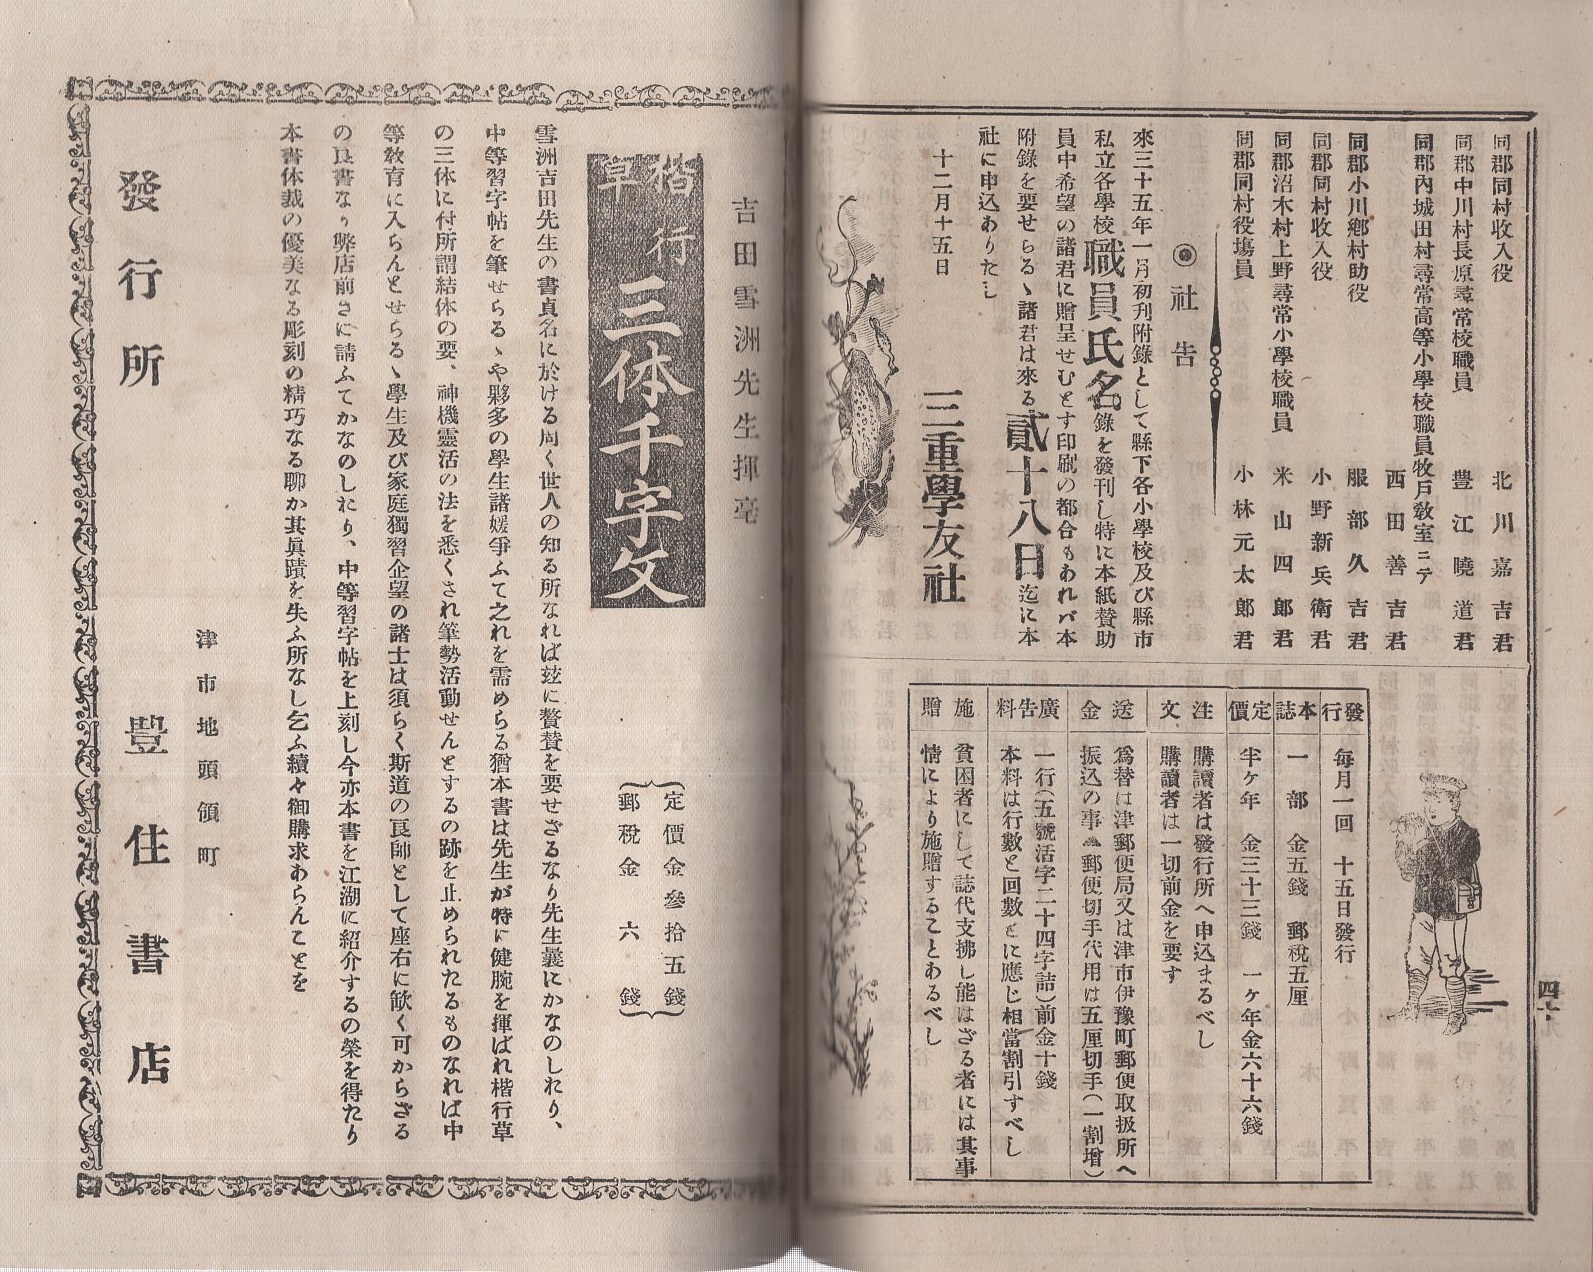 同郡同村收入役　北川嘉吉君
同郡中川村長原尋常校職員　豊江曉道君
同郡內城田村尋常高等小學校職員牧戸敎室ニテ
西田善吉君
同郡小川鄕村助役　服部久吉君
同郡同村收入役　小野新兵衛君
同郡沼木村上野尋常小學校職員　米山四郎君
同郡同村役塲員　小林元太郎君
◎社告
來三十五年一月初刋附錄として縣下各小學校及び縣市
私立各學校職員氏名錄を發刊し特に本紙賛助
員中希望の諸君に贈呈せむとす印刷の都合もあれバ本
附錄を要せらるゝ諸君は來る貳十八日迄に本
社に申込ありたし
十二月十五日
三重學友社
發行　每月一回　十五日發行
本誌定價　一部　金五錢　郵稅五厘
半ケ年　金三十三錢　一ケ年金六十六錢
注文　購讀者は發行所へ申込まるべし
購讀者は一切前金を要す
送金　爲替は津郵便局又は津市伊豫町郵便取扱所へ
振込の事▲郵便切手代用は五厘切手(一割增)
廣告料　一行(五號活字二十四字詰)前金十錢
本料は行數と回數とに應じ相當割引すべし
施贈　貧困者にして誌代支拂し能はざる者には其事
情により施贈することあるべし
吉田雪洲先生揮毫
楷行草三体千字文
定價金參拾五錢
郵稅金六錢
雪洲吉田先生の書貞名に於ける周く世人の知る所なれば玆に贅賛を要せざるなり先生曩にかなのしれり、
中等習字帖を筆せらるゝや夥多の學生諸媛爭ふて之れを需めらる猶本書は先生が特に健腕を揮ばれ楷行草
の三体に付所謂結体の要、神機靈活の法を悉くされ筆勢活動せんとするの跡を止められたるものなれば中
等敎育に入らんとせらるゝ學生及び家庭獨習企望の諸士は須らく斯道の良師として座右に缺く可からざる
の良書なり弊店前さに請ふてかなのしれり、中等習字帖を上刻し今亦本書を江湖に紹介するの榮を得たり
本書体裁の優美なる彫刻の精巧なる聊か其眞蹟を失ふ所なし乞ふ續々御購求あらんことを
津市地頭領町
發行所　豐住書店